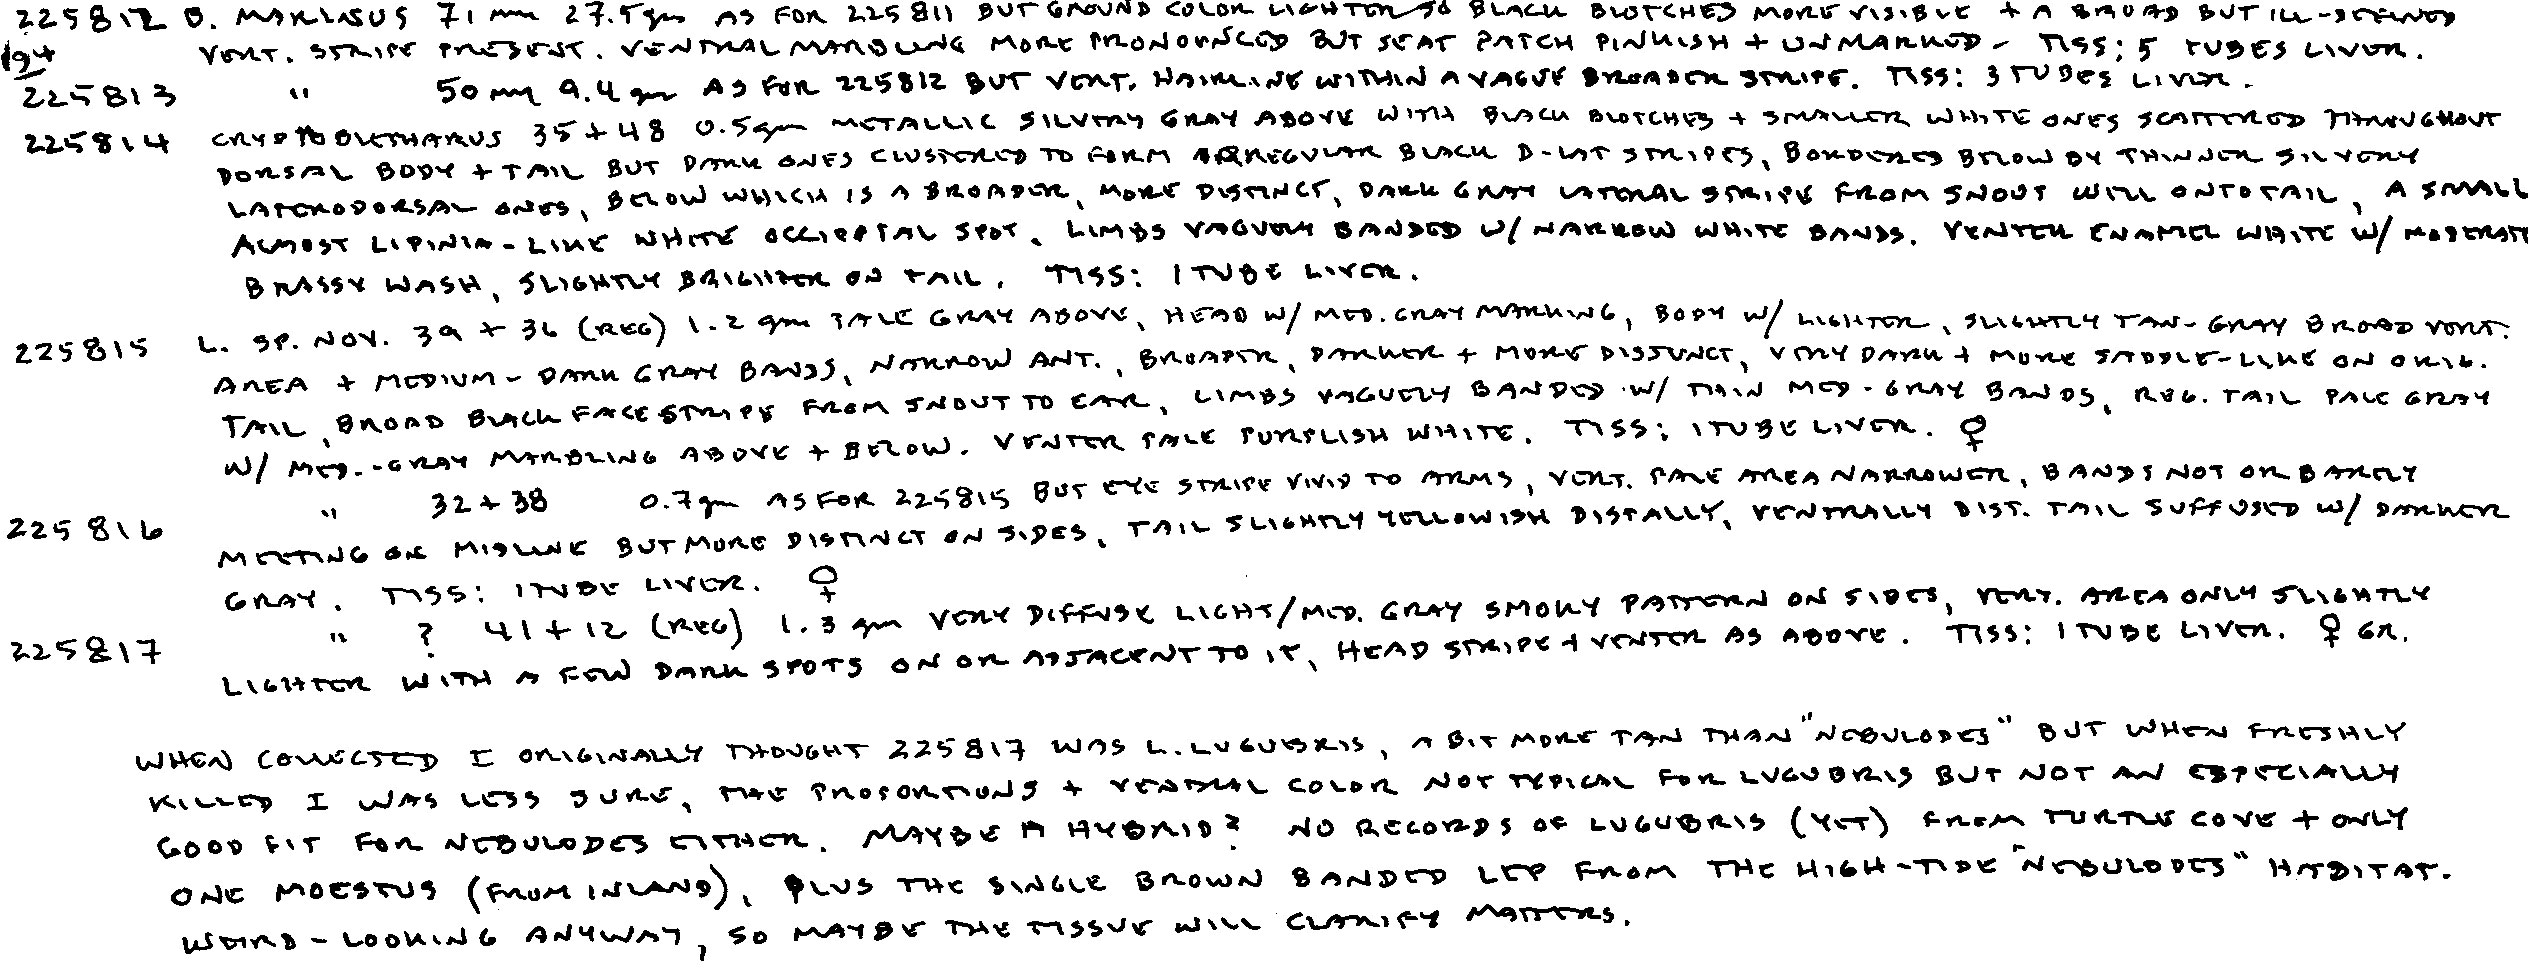 225812 O. MARIASUS 71 mm 27.5 gm AS FOR 225811 BUT GROUND COLOR LIGHTER SO BLACK BLOTCHES MORE VISIBLE + A BROAD BUT ILL-DEFINED
194 VERT. STRIPE PRESENT. VENTRAL MARBLING MORE PRONOUNCED BUT SEAT PATCH PINKISH + UNMARKED - TISS: 5 TUBES LIVER.
225813 " 50 mm 9.4 gm AS FOR 225812 BUT VERT. HAIRLINE WITHIN A VAGUE BROADER STRIPE. TISS: 3 TUBES LIVER.
225814 CRYPTOBLEPHARUS 35+48 0.5 gm METALLIC SILVERY GRAY ABOVE WITH BLACK BLOTCHES + SMALLER WHITE ONES SCATTERED THROUGHOUT
DORSAL BODY + TAIL BUT DARK ONES CLUSTERED TO FORM IRREGULAR BLACK D-LAT STRIPES, BORDERED BELOW BY THINNER SILVERY
LATERODORSAL ONES, BELOW WHICH IS A BROADER, MORE DISTINCT, DARK GRAY LATERAL STRIPE FROM SNOUT WELL ONTO TAIL, A SMALL
ALMOST LIPINIA-LIKE WHITE OCCIPITAL SPOT, LIMBS VAGUELY BANDED W/ NARROW WHITE BANDS. VENTER ENAMEL WHITE W/ MODERATE
BRASSY WASH, SLIGHTLY BRIGHTER ON TAIL. TISS: 1 TUBE LIVER.
225815 L. SP. NOV. 39 + 36 (REG) 1.2 gm PALE GRAY ABOVE, HEAD W/ MED. GRAY MARKING, BODY W/ LIGHTER, SLIGHTLY TAN-GRAY BROAD VERT.
AREA + MEDIUM-DARK GRAY BANDS, NARROW ANT., BROADER, DARKER + MORE DISJUNCT, VERY DARK + MORE SADDLE-LIKE ON ORIG.
TAIL, BROAD BLACK FACE STRIPE FROM SNOUT TO EAR, LIMBS VAGUELY BANDED W/ THIN MED-GRAY BANDS, REG. TAIL PALE GRAY
W/ MED.-GRAY MARBLING ABOVE + BELOW. VENTER PALE PURPLISH WHITE. TISS: 1 TUBE LIVER. ♀
225816 " 32+38 0.7 gm AS FOR 225815 BUT EYE STRIPE VIVID TO ARMS, VERT. PALE AREA NARROWER, BANDS NOT OR BARELY
MEETING ON MIDLINE BUT MORE DISTINCT ON SIDES, TAIL SLIGHTLY YELLOWISH DISTALLY, VENTRALLY DIST. TAIL SUFFUSED W/ DARKER
GRAY. TISS: 1 TUBE LIVER. ♀
225817 " ? 41+12 (REG) 1.3 gm VERY DIFFUSE LIGHT/MED. GRAY SMOKY PATTERN ON SIDES, VERT. AREA ONLY SLIGHTLY
LIGHTER WITH A FEW DARK SPOTS ON OR ADJACENT TO IT, HEAD STRIPE + VENTER AS ABOVE. TISS: 1 TUBE LIVER. ♀ GR.
WHEN COLLECTED I ORIGINALLY THOUGHT 225817 WAS L. LUGUBRIS, A BIT MORE TAN THAN "NEBULODES" BUT WHEN FRESHLY
KILLED I WAS LESS SURE, THE PROPORTIONS + VENTRAL COLOR NOT TYPICAL FOR LUGUBRIS BUT NOT AN ESPECIALLY
GOOD FIT FOR NEBULODES EITHER. MAYBE A HYBRID? NO RECORDS OF LUGUBRIS (YET) FROM TURTLE COVE + ONLY
ONE MOESTUS (FROM INLAND), PLUS THE SINGLE BROWN BANDED LEP FROM THE HIGH-TIDE "NEBULODES" HABITAT.
WEIRD-LOOKING ANYWAY, SO MAYBE THE TISSUE WILL CLARIFY MATTERS.